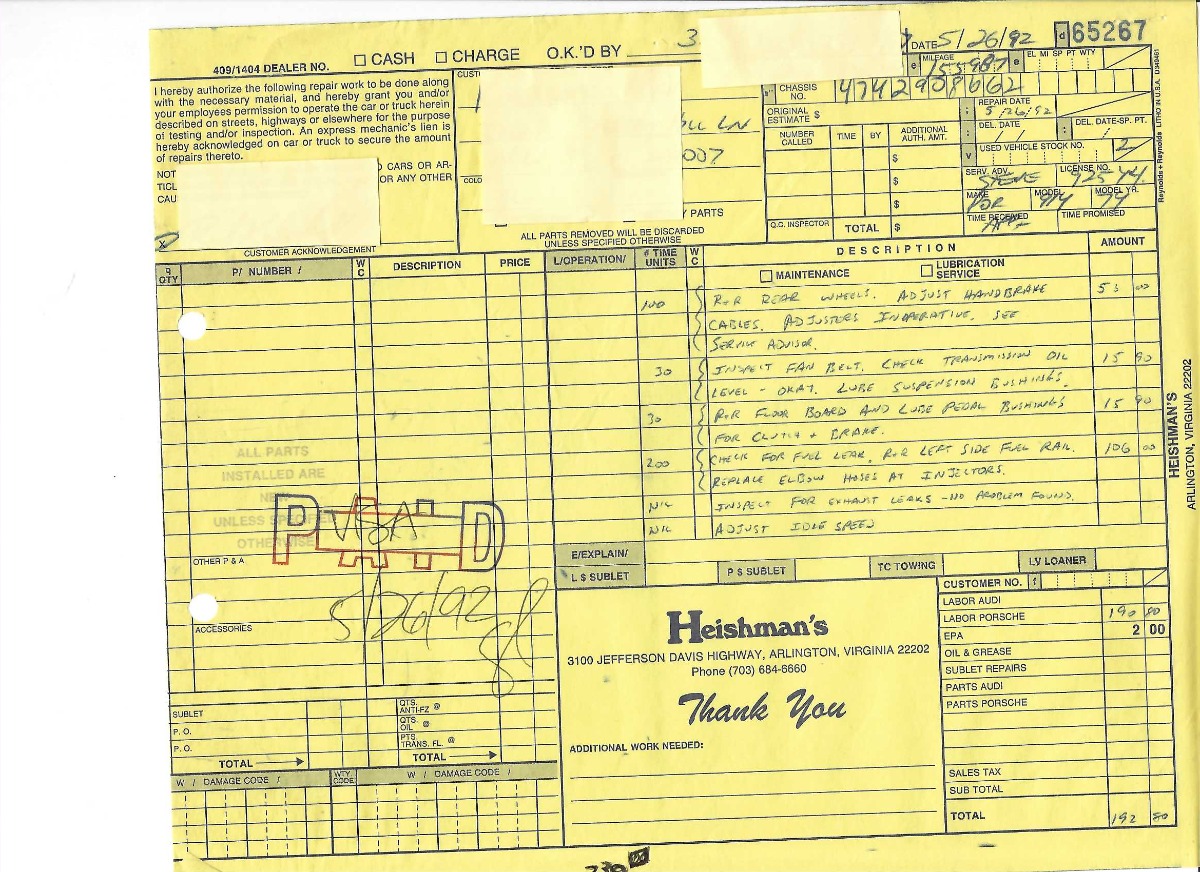 409/1404 DEALER NO. ☐ CASH ☐ CHARGE O.K.'D BY 3
DATE 5/26/92 65267
MILEAGE 155987 EL MI SP PT WTY
I hereby authorize the following repair work to be done along
with the necessary material, and hereby grant you and/or
your employees permission to operate the car or truck herein
described on streets, highways or elsewhere for the purpose
of testing and/or inspection. An express mechanic's lien is
hereby acknowledged on car or truck to secure the amount
of repairs thereto.
NOT CARS OR AR-
TICL OR ANY OTHER
CAU
X
CUSTOMER ACKNOWLEDGEMENT
CUST
LN
007
COLO
Y PARTS
ALL PARTS REMOVED WILL BE DISCARDED
UNLESS SPECIFIED OTHERWISE
CHASSIS NO. 4742908662
ORIGINAL ESTIMATE $
NUMBER CALLED TIME BY ADDITIONAL AUTH. AMT.
$
$
$
Q.C. INSPECTOR TOTAL $
REPAIR DATE 5/26/92
DEL. DATE / / DEL. DATE-SP. PT. /
USED VEHICLE STOCK NO. 2
SERV. ADV. STEVE LICENSE NO. 92544
MAKE POR MODEL 914 MODEL YR. 74
TIME RECEIVED TIME PROMISED
Reynolds + Reynolds LITHO IN U.S.A.
Q QTY P/ NUMBER / W C DESCRIPTION PRICE L/OPERATION/ # TIME UNITS W C DESCRIPTION AMOUNT
☐ MAINTENANCE ☐ LUBRICATION SERVICE
100 R+R REAR WHEELS. ADJUST HANDBRAKE 53 00
CABLES. ADJUSTERS INOPERATIVE. SEE
SERVICE ADVISOR.
30 INSPECT FAN BELT. CHECK TRANSMISSION OIL 15 90
LEVEL - OKAY. LUBE SUSPENSION BUSHINGS.
30 R+R FLOOR BOARD AND LUBE PEDAL BUSHINGS 15 90
FOR CLUTCH + BRAKE.
200 CHECK FOR FUEL LEAK. R+R LEFT SIDE FUEL RAIL. 106 00
REPLACE ELBOW HOSES AT INJECTORS.
N/C INSPECT FOR EXHAUST LEAKS - NO PROBLEM FOUND.
N/C ADJUST IDLE SPEED
ALL PARTS
INSTALLED ARE
NEW
UNLESS SPECIFIED
OTHERWISE
PAID
VISA
5/26/92
OTHER P & A
ACCESSORIES
HEISHMAN'S
ARLINGTON, VIRGINIA 22202
E/EXPLAIN/
L $ SUBLET P $ SUBLET TC TOWING LV LOANER
Heishman's
3100 JEFFERSON DAVIS HIGHWAY, ARLINGTON, VIRGINIA 22202
Phone (703) 684-6660
Thank You
ADDITIONAL WORK NEEDED:
CUSTOMER NO. /
LABOR AUDI
LABOR PORSCHE 190 80
EPA 2 00
OIL & GREASE
SUBLET REPAIRS
PARTS AUDI
PARTS PORSCHE
SALES TAX
SUB TOTAL
TOTAL 192 80
SUBLET QTS. ANTI-FZ @
P. O. QTS. OIL @
P. O. PTS. TRANS. FL. @
TOTAL TOTAL
W / DAMAGE CODE / WTY. CODE W / DAMAGE CODE /